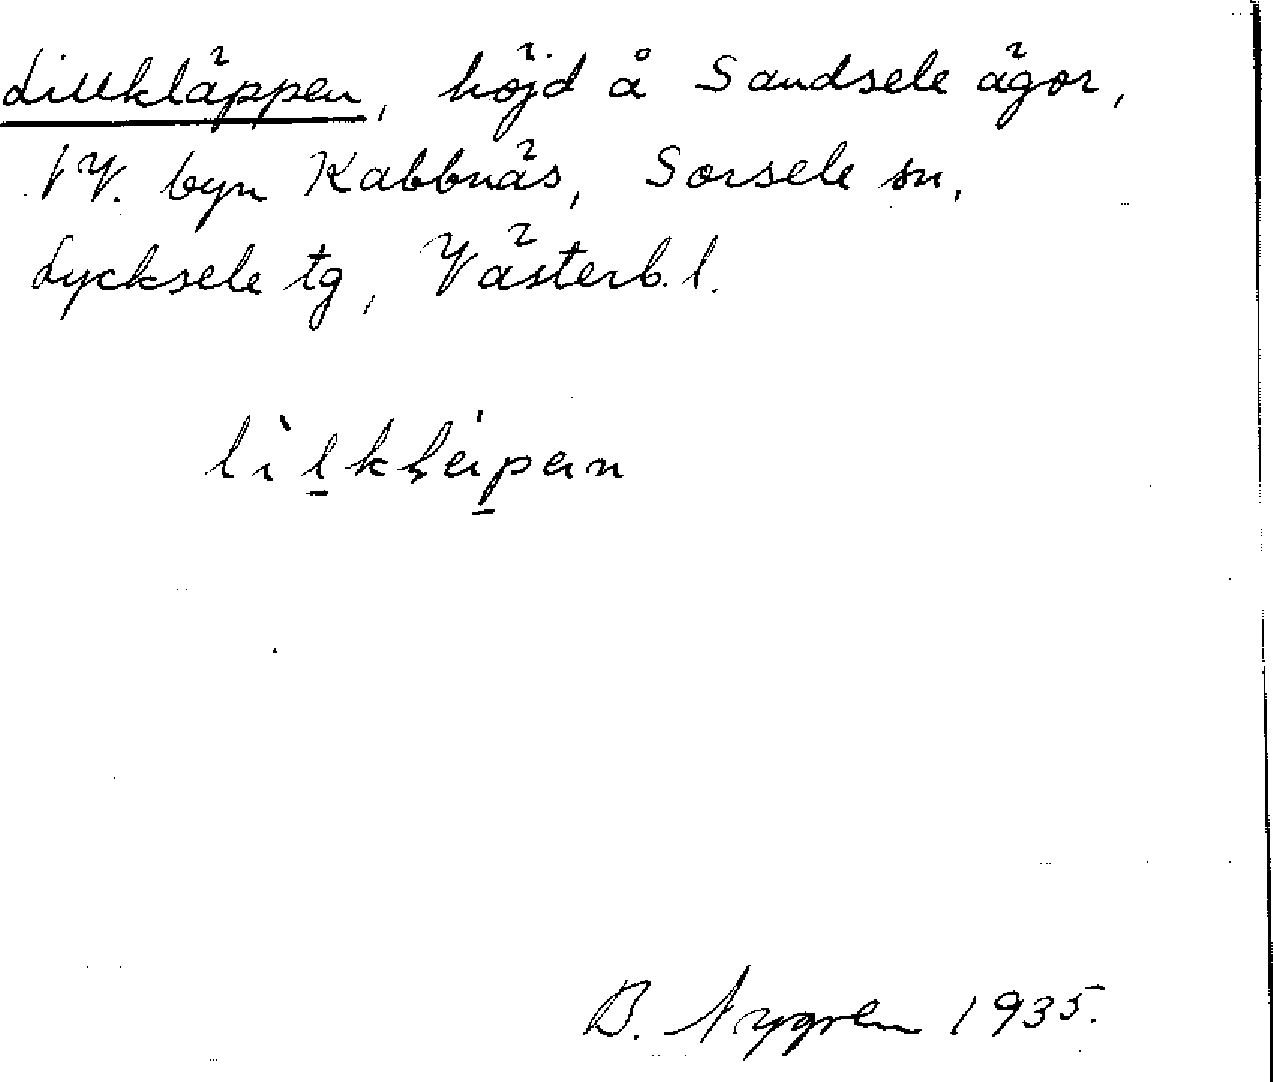 Lillkläppen, höjd å Sandsele ägor,
NV. byn Kabbnäs, Sorsele sn,
Lycksele tg, Västerb. l.
B. Nygren 1935.